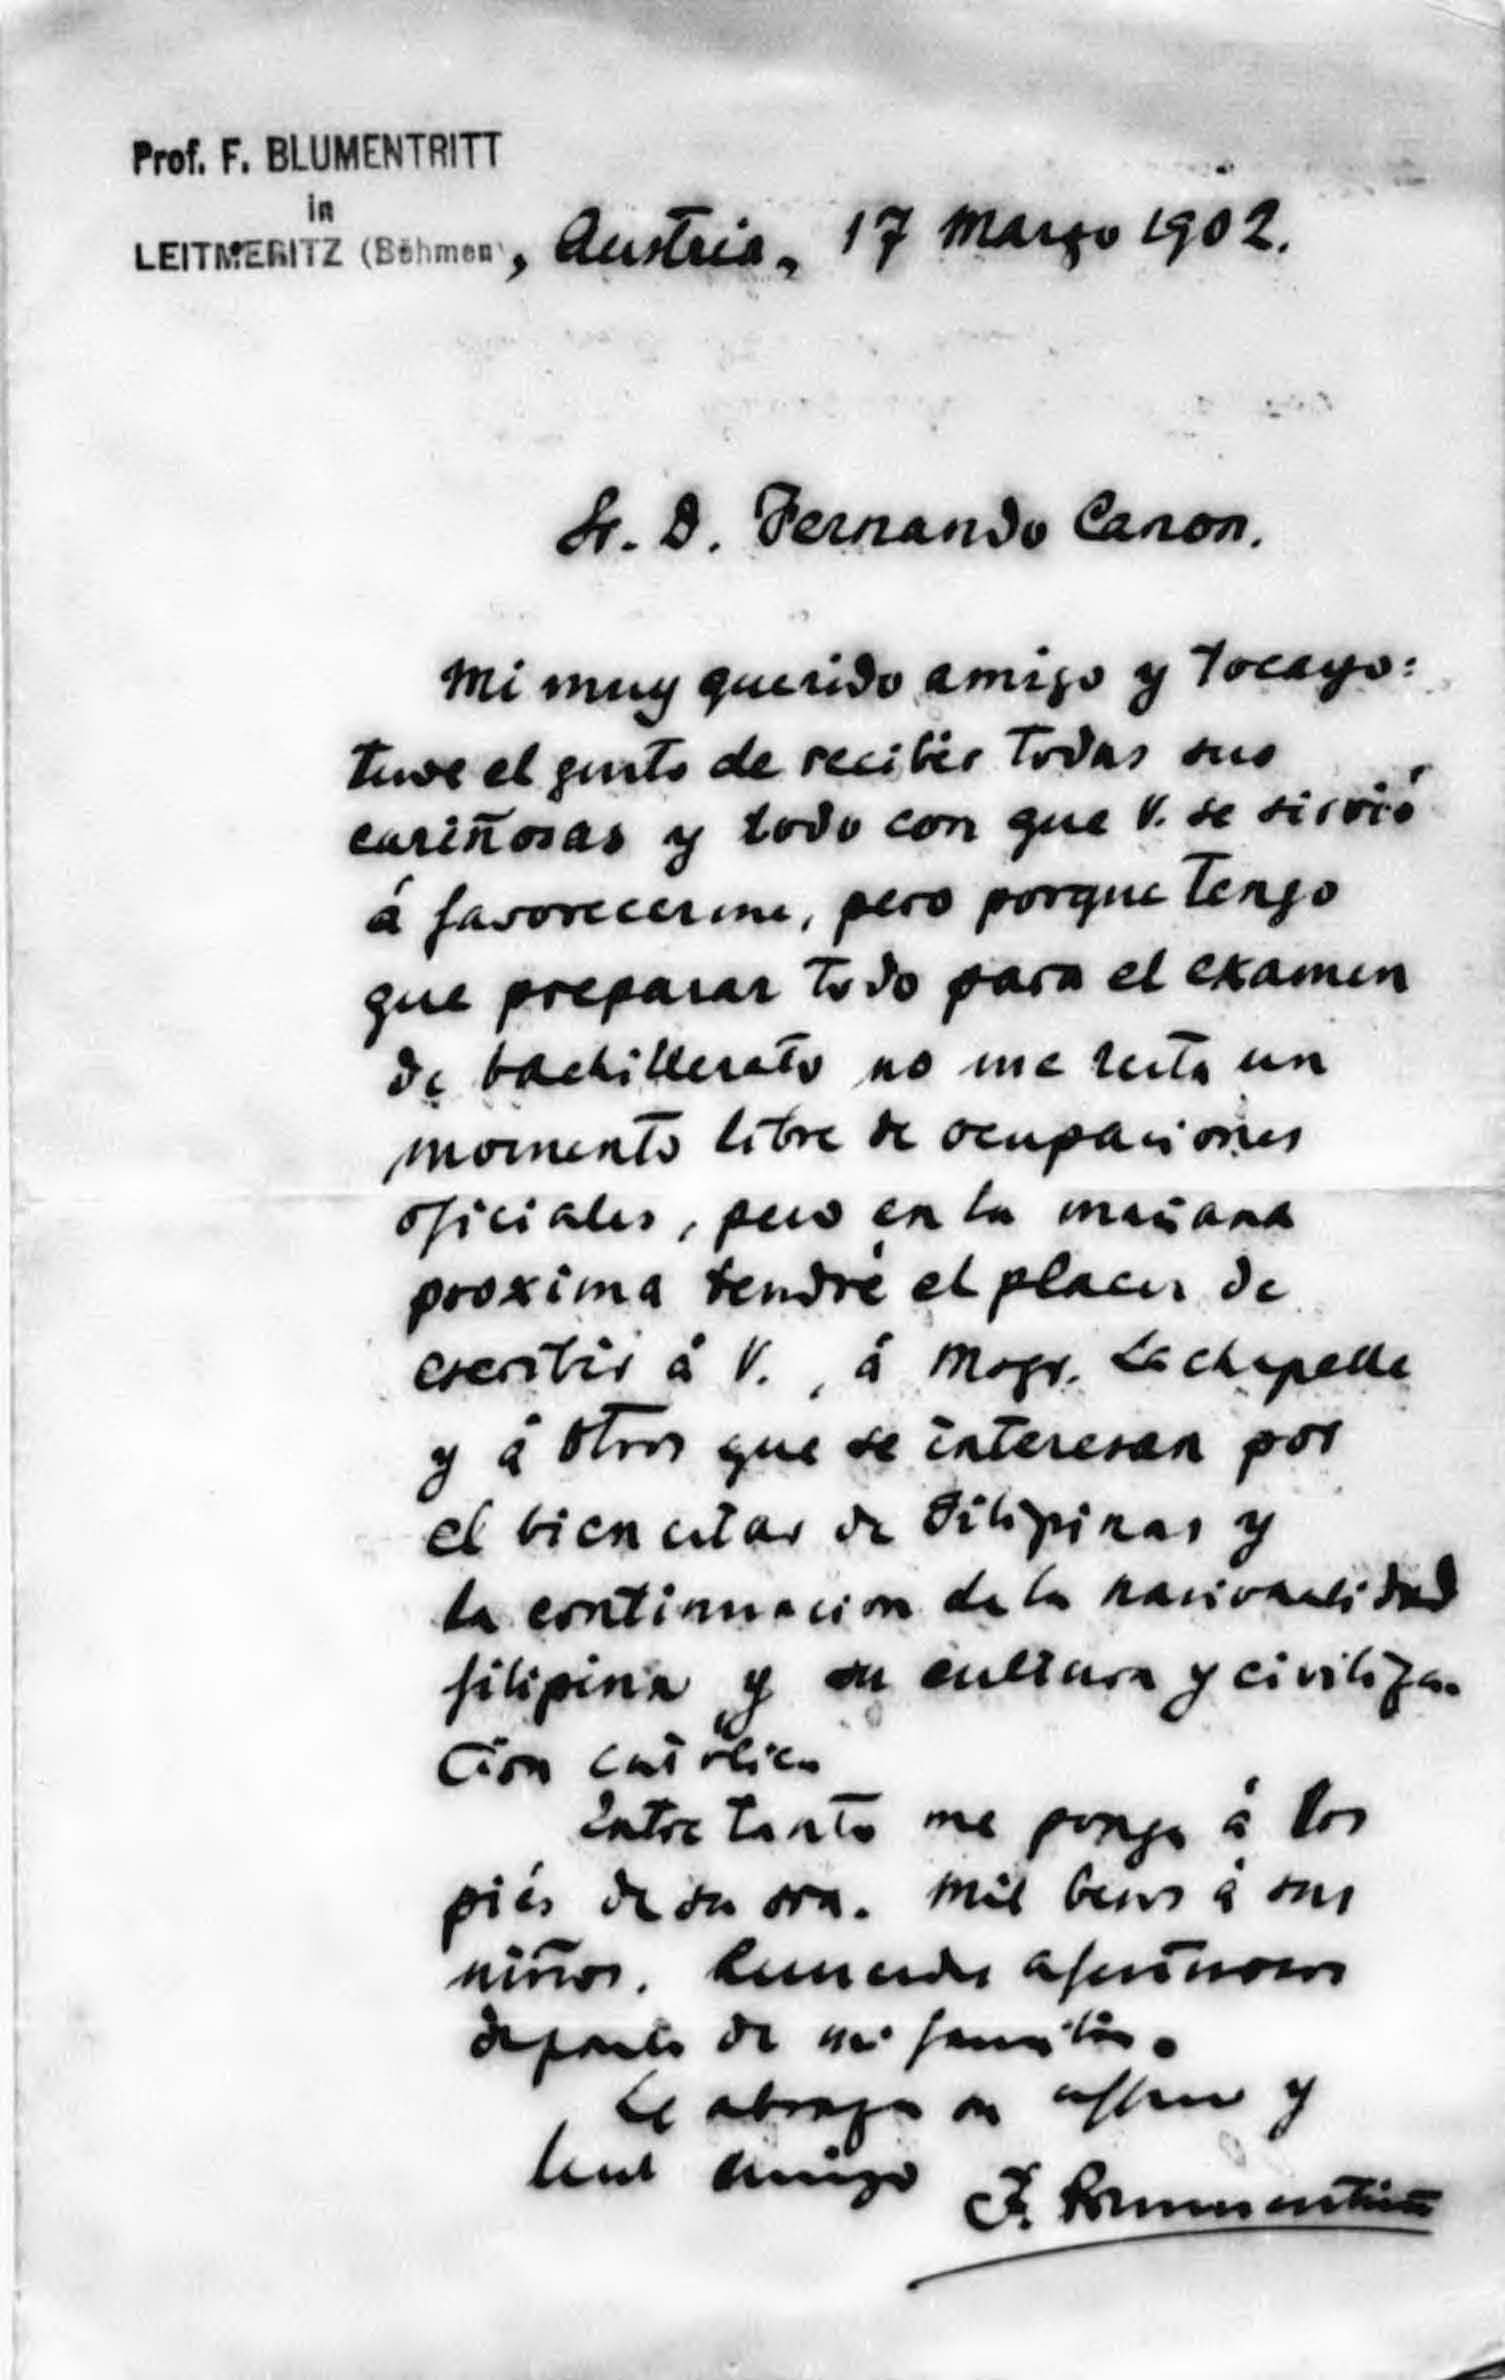 Prof. F. BLUMENTRITT
in
LEITMERITZ (Böhmen), Austria, 17 Março 1902.
Sr. D. Fernando Canon.
Mi muy querido amigo y tocayo:
tuve el gusto de recibir todas sus
cariñosas y todo con que V. se sirvió
á favorecerme, pero porque tengo
que preparar todo para el examen
de bachillerato no me resta un
momento libre de ocupaciones
oficiales, pero en la mañana
proxima tendré el placer de
escribir á V., á Msgr. Lachapelle
y á otros que se interesan por
el bien estar de Filipinas y
la continuacion de la nacionalidad
filipina y su cultura y civiliza-
cion católica
Entre tanto me pongo á los
piés de su sra. Mil besos á sus
niños. Recuerdos afectuosos
de parte de mi familia.
Le abraza su affmo y
leal amigo F. Blumentritt